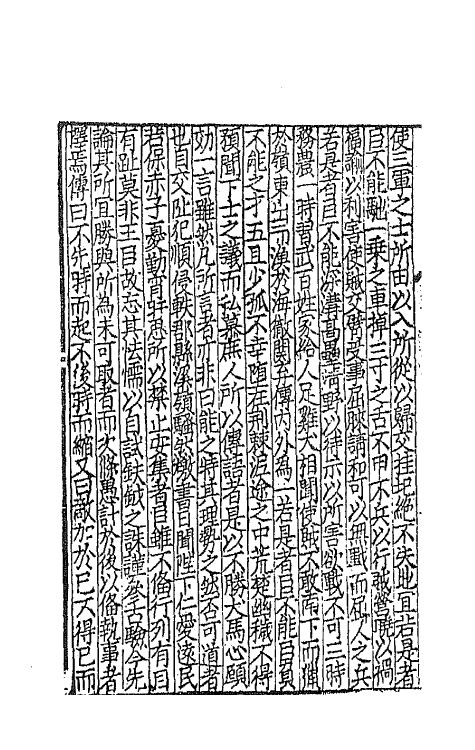 使三軍之士所由以入所從以歸交挂圮絶不失地宜若是者
臣不能馳一乗之車掉三寸之舌不甲不兵以行誠營難以禍
福諭以利害使賊交臂受事屈膝請和可以無戰而屈人之兵
若是者臣不能深溝髙壘清野以待示以所害欲戰不可三時
務農一時習武百姓家給人足雞犬相聞使賊不敢
東
不能之才五且少孤不幸墮在荆棘泥途之中荒楚幽穢不得
預聞下士之議而私慕庶人所以傳語者是以不勝犬馬心願
効一言雖然凡所言者亦非曰能之時其理勢之然否可道者
也自交阯犯順侵軼郡縣深頟騷然激書日聞陛下仁愛逺民
若保赤子憂勤宵旰思所以禁止安集者臣雖不備行列有目
有趾莫非王臣故忘其怯懦以自試鈇鉞之誅謹參古驗今先
論其所宜勝與所為未可取者而次條愚計於後以俻執事者
擇焉傳曰不先時而起不後時而縮又曰敵加於已不得已而